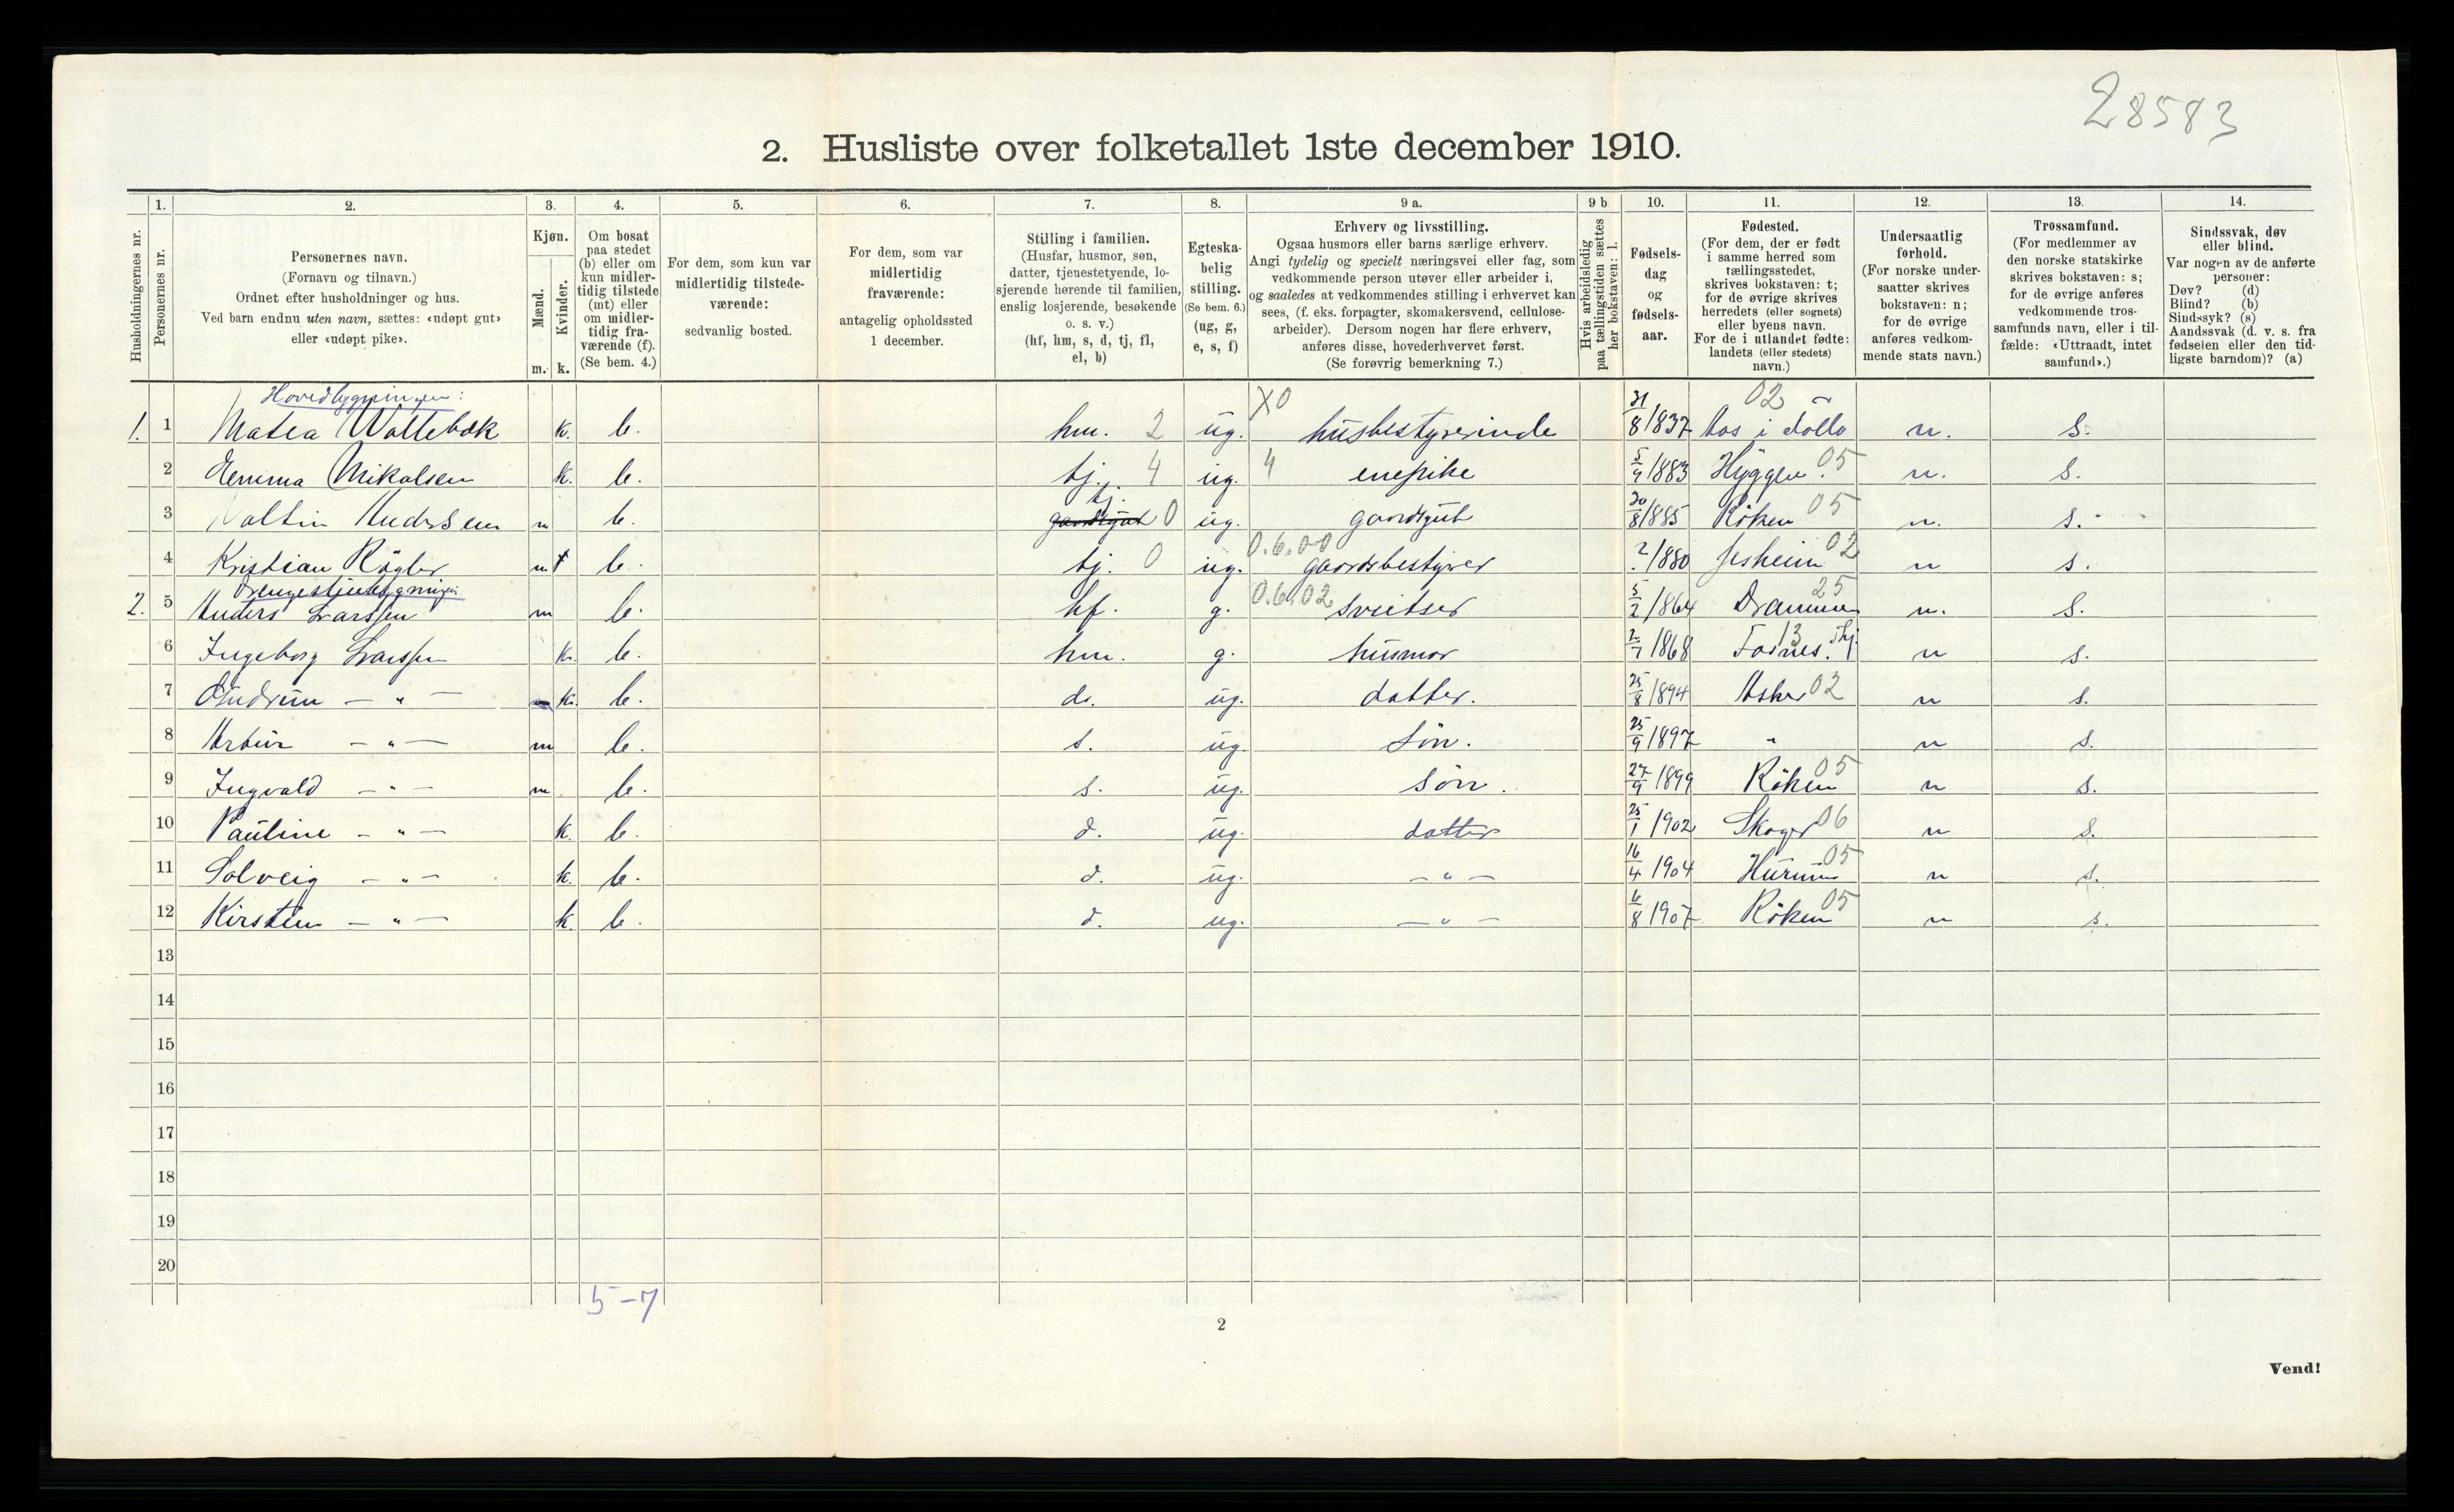 28583
2. Husliste over folketallet 1ste december 1910.
Husholdningernes nr.
1. Personernes nr.
2. Personernes navn.
(Fornavn og tilnavn.)
Ordnet efter husholdninger og hus.
Ved barn endnu uten navn, sættes: «udøpt gut»
eller «udøpt pike».
3. Kjøn.
Mænd. Kvinder.
m. k.
4. Om bosat
paa stedet
(b) eller om
kun midler-
tidig tilstede
(mt) eller
om midler-
tidig fra-
værende (f).
(Se bem. 4.)
5. For dem, som kun var
midlertidig tilstede-
værende:
sedvanlig bosted.
6. For dem, som var
midlertidig
fraværende:
antagelig opholdssted
1 december.
7. Stilling i familien.
(Husfar, husmor, søn,
datter, tjenestetyende, lo-
sjerende hørende til familien,
enslig losjerende, besøkende
o. s. v.)
(hf, hm, s, d, tj, fl,
el, b)
8. Egteska-
belig
stilling.
(Se bem. 6.)
(ug, g,
e, s, f)
9 a. Erhverv og livsstilling.
Ogsaa husmors eller barns særlige erhverv.
Angi tydelig og specielt næringsvei eller fag, som
vedkommende person utøver eller arbeider i,
og saaledes at vedkommendes stilling i erhvervet kan
sees, (f. eks. forpagter, skomakersvend, cellulose-
arbeider). Dersom nogen har flere erhverv,
anføres disse, hovederhvervet først.
(Se forøvrig bemerkning 7.)
9 b Hvis arbeidsledig
paa tællingstiden sættes
her bokstaven: l.
10. Fødsels-
dag
og
fødsels-
aar.
11. Fødested.
(For dem, der er født
i samme herred som
tællingsstedet,
skrives bokstaven: t;
for de øvrige skrives
herredets (eller sognets)
eller byens navn.
For de i utlandet fødte:
landets (eller stedets)
navn.)
12. Undersaatlig
forhold.
(For norske under-
saatter skrives
bokstaven: n;
for de øvrige
anføres vedkom-
mende stats navn.)
13. Trossamfund.
(For medlemmer av
den norske statskirke
skrives bokstaven: s;
for de øvrige anføres
vedkommende tros-
samfunds navn, eller i til-
fælde: «Uttraadt, intet
samfund».)
14. Sindssvak, døv
eller blind.
Var nogen av de anførte
personer:
Døv? (d)
Blind? (b)
Sindssyk? (s)
Aandssvak (d. v. s. fra
fødselen eller den tid-
ligste barndom)? (a)
Hovedbygningen: X0 02
1. 1 Matea Wollebæk k. b. hm. 2 ug. husbestyrerinde 31/8 1837 i n. s.
2 Emma Nikolsen k. b. tj. 4 ug. 4 enepike 5/9 1883 Hyggen. 05 n. s.
3 Andersen m b. tj. gaardsgut 0 ug. gaardsgut 30/8 1885 Röken 05 n. s.
4 Kristian m b. tj. 0 ug. 0.6.00 gaardsbestyrer ?/1880 Jesheim 02 n s.
Drengestuebygningen:
2. 5 Anders Larssen m b. hf. g. 0.6.02 sveitser 5/2 1864 Drammen 25 n. s.
6 Ingeborg Larssen k. b. hm. g. husmor 2/7 1868 13 n s.
7 Gudrun — " — k. b. d. ug. datter. 25/8 1894 Asker 02 n s.
8 Artur — " — m b. s. ug. Sön. 25/9 1897 " n s.
9 Ingvald — " — m b. s. ug. Sön. 27/9 1899 Röken 05 n s.
10 Pauline — " — k. b. d. ug. datter 25/1 1902 Skoger 06 n s.
11 Solveig — " — k. b. d. ug. — " — 16/4 1904 Hurum 05 n s.
12 Kirsten — " — k. b. d. ug. — " — 6/8 1907 Röken 05 n s.
13
14
15
16
17
18
19
20
5-7
2
Vend!